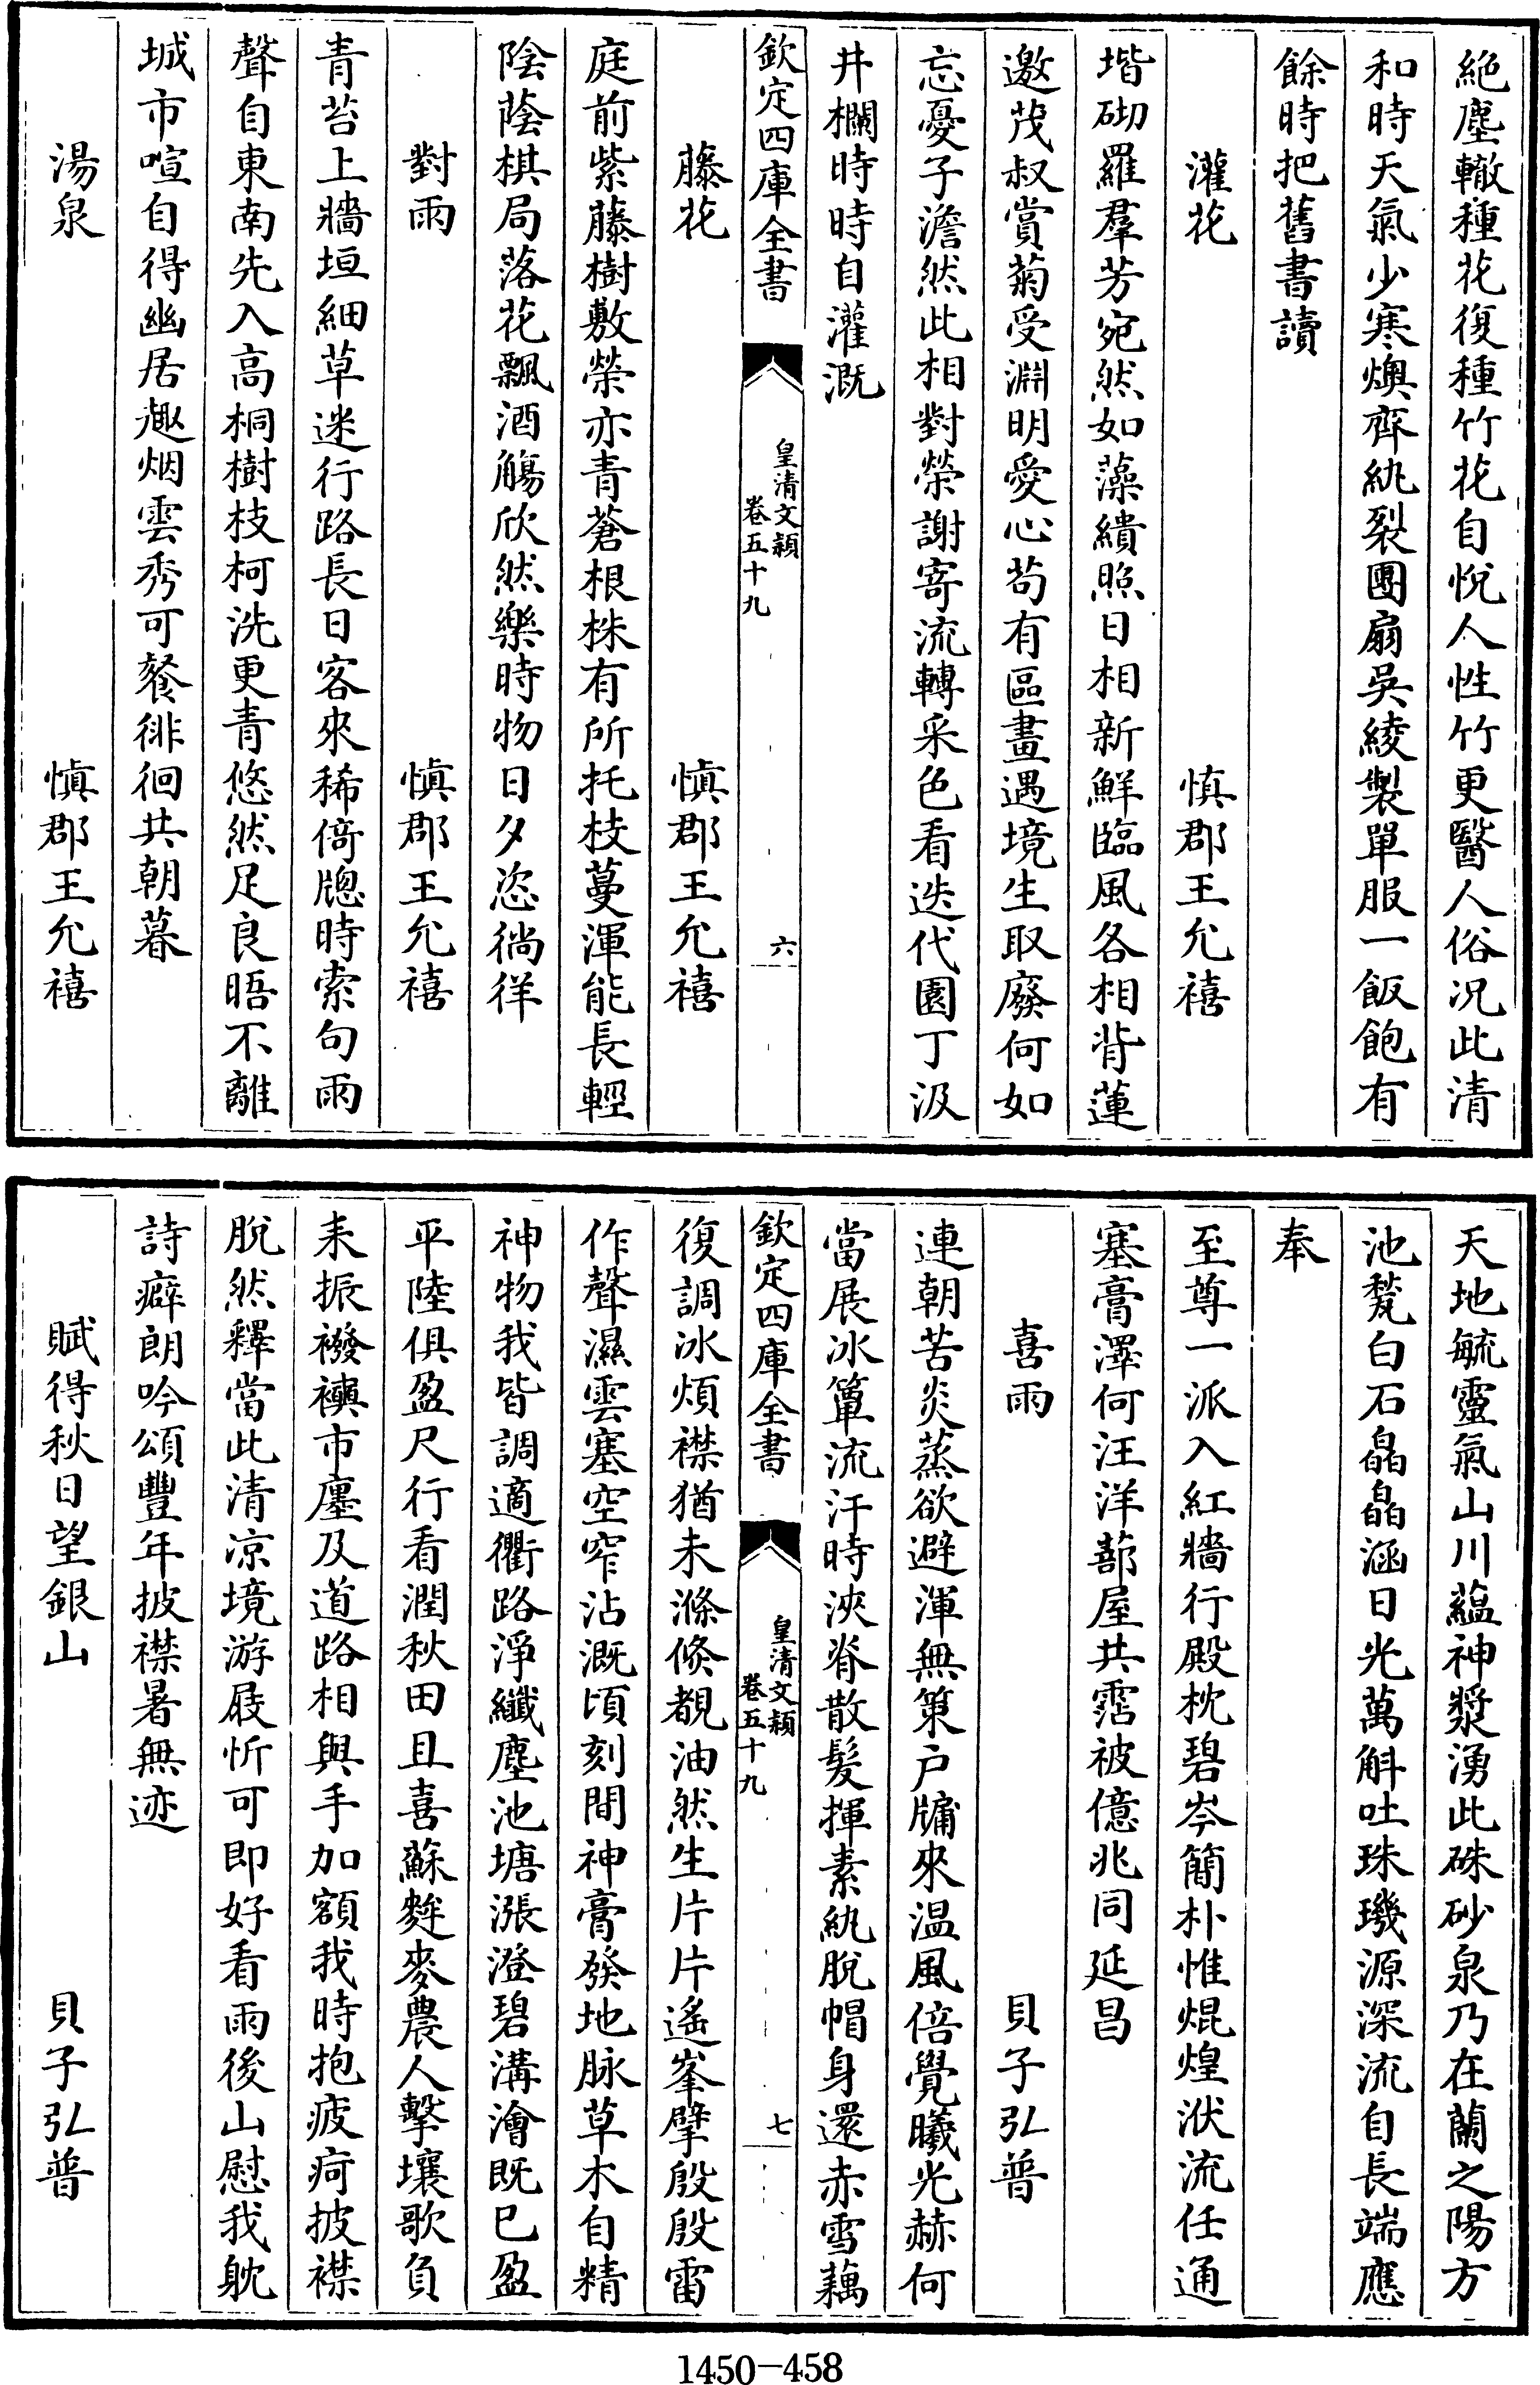 絶塵轍種花復種竹花自悅人性竹更醫人俗况此清
和時天氣少寒燠齊紈裂團扇吳綾製單服一飯飽有
餘時把舊書讀
灌花 慎郡王允禧
堦砌羅羣芳宛然如藻繢照日相新鮮臨風各相背蓮
邀茂叔賞菊受淵明愛心茍有區畫遇境生取廢何如
忘憂子澹然此相對榮謝寄流轉采色看迭代園丁汲
井欄時時自灌溉
欽定四庫全書 皇清文穎 卷五十九 六
藤花 慎郡王允禧
庭前紫藤樹敷榮亦青蒼根株有所托枝蔓渾能長輕
陰蔭棋局落花飄酒觴欣然樂時物日夕恣徜徉
對雨 慎郡王允禧
青苔上牆垣細草迷行路長日客來稀倚牕時索句雨
聲自東南先入高桐樹枝柯洗更青悠然足良晤不離
城市喧自得幽居趣烟雲秀可餐徘徊共朝暮
湯泉 慎郡王允禧
天地毓靈氣山川蘊神漿湧此硃砂泉乃在蘭之陽方
池甃白石皛皛涵日光萬斛吐珠璣源深流自長端應
奉
至尊一派入紅牆行殿枕碧岑簡朴惟焜煌洑流任通
塞膏澤何汪洋蔀屋共霑被億兆同延昌
喜雨 貝子弘普
連朝苦炎蒸欲避渾無策戶牖來温風倍覺曦光赫何
當展冰簟流汗時浹脊散髮揮素紈脫帽身還赤雪藕
欽定四庫全書 皇清文穎 卷五十九 七
復調冰煩襟猶未滌倐覩油然生片片遙峯擘殷殷雷
作聲濕雲塞空窄沾溉頃刻間神膏發地脉草木自精
神物我皆調適衢路淨纖塵池塘漲澄碧溝澮既已盈
平陸俱盈尺行看潤秋田且喜蘇麰麥農人擊壤歌負
耒振襏襫市廛及道路相與手加額我時抱疲疴披襟
脫然釋當此清凉境游屐忻可即好看雨後山慰我躭
詩癖朗吟頌豐年披襟暑無迹
賦得秋日望銀山 貝子弘普
1450-458